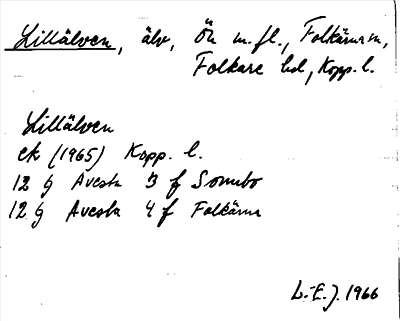 Lillälven, älv, Ön m.fl., Folkärna sn,
Folkare hd, Kopp. l.
Lillälven
ek (1965) Kopp. l.
12 g Avesta 3 f Sonnbo
12 g Avesta 4 f Folkärna
L.-E. J. 1966